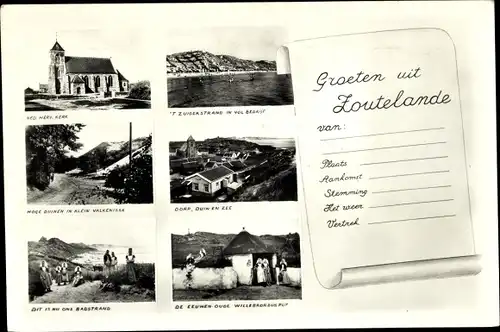 NED. HERV. KERK
'T ZUIDERSTRAND IN VOL BEDRIJF
HOGE DUINEN IN KLEIN VALKENISSE
DORP, DUIN EN ZEE
DIT IS NU ONS BADSTRAND
DE EEUWEN OUDE WILLEBRORDUSPUT
Groeten uit
Zoutelande
van:
Plaats
Aankomst
Stemming
Het weer
Vertrek